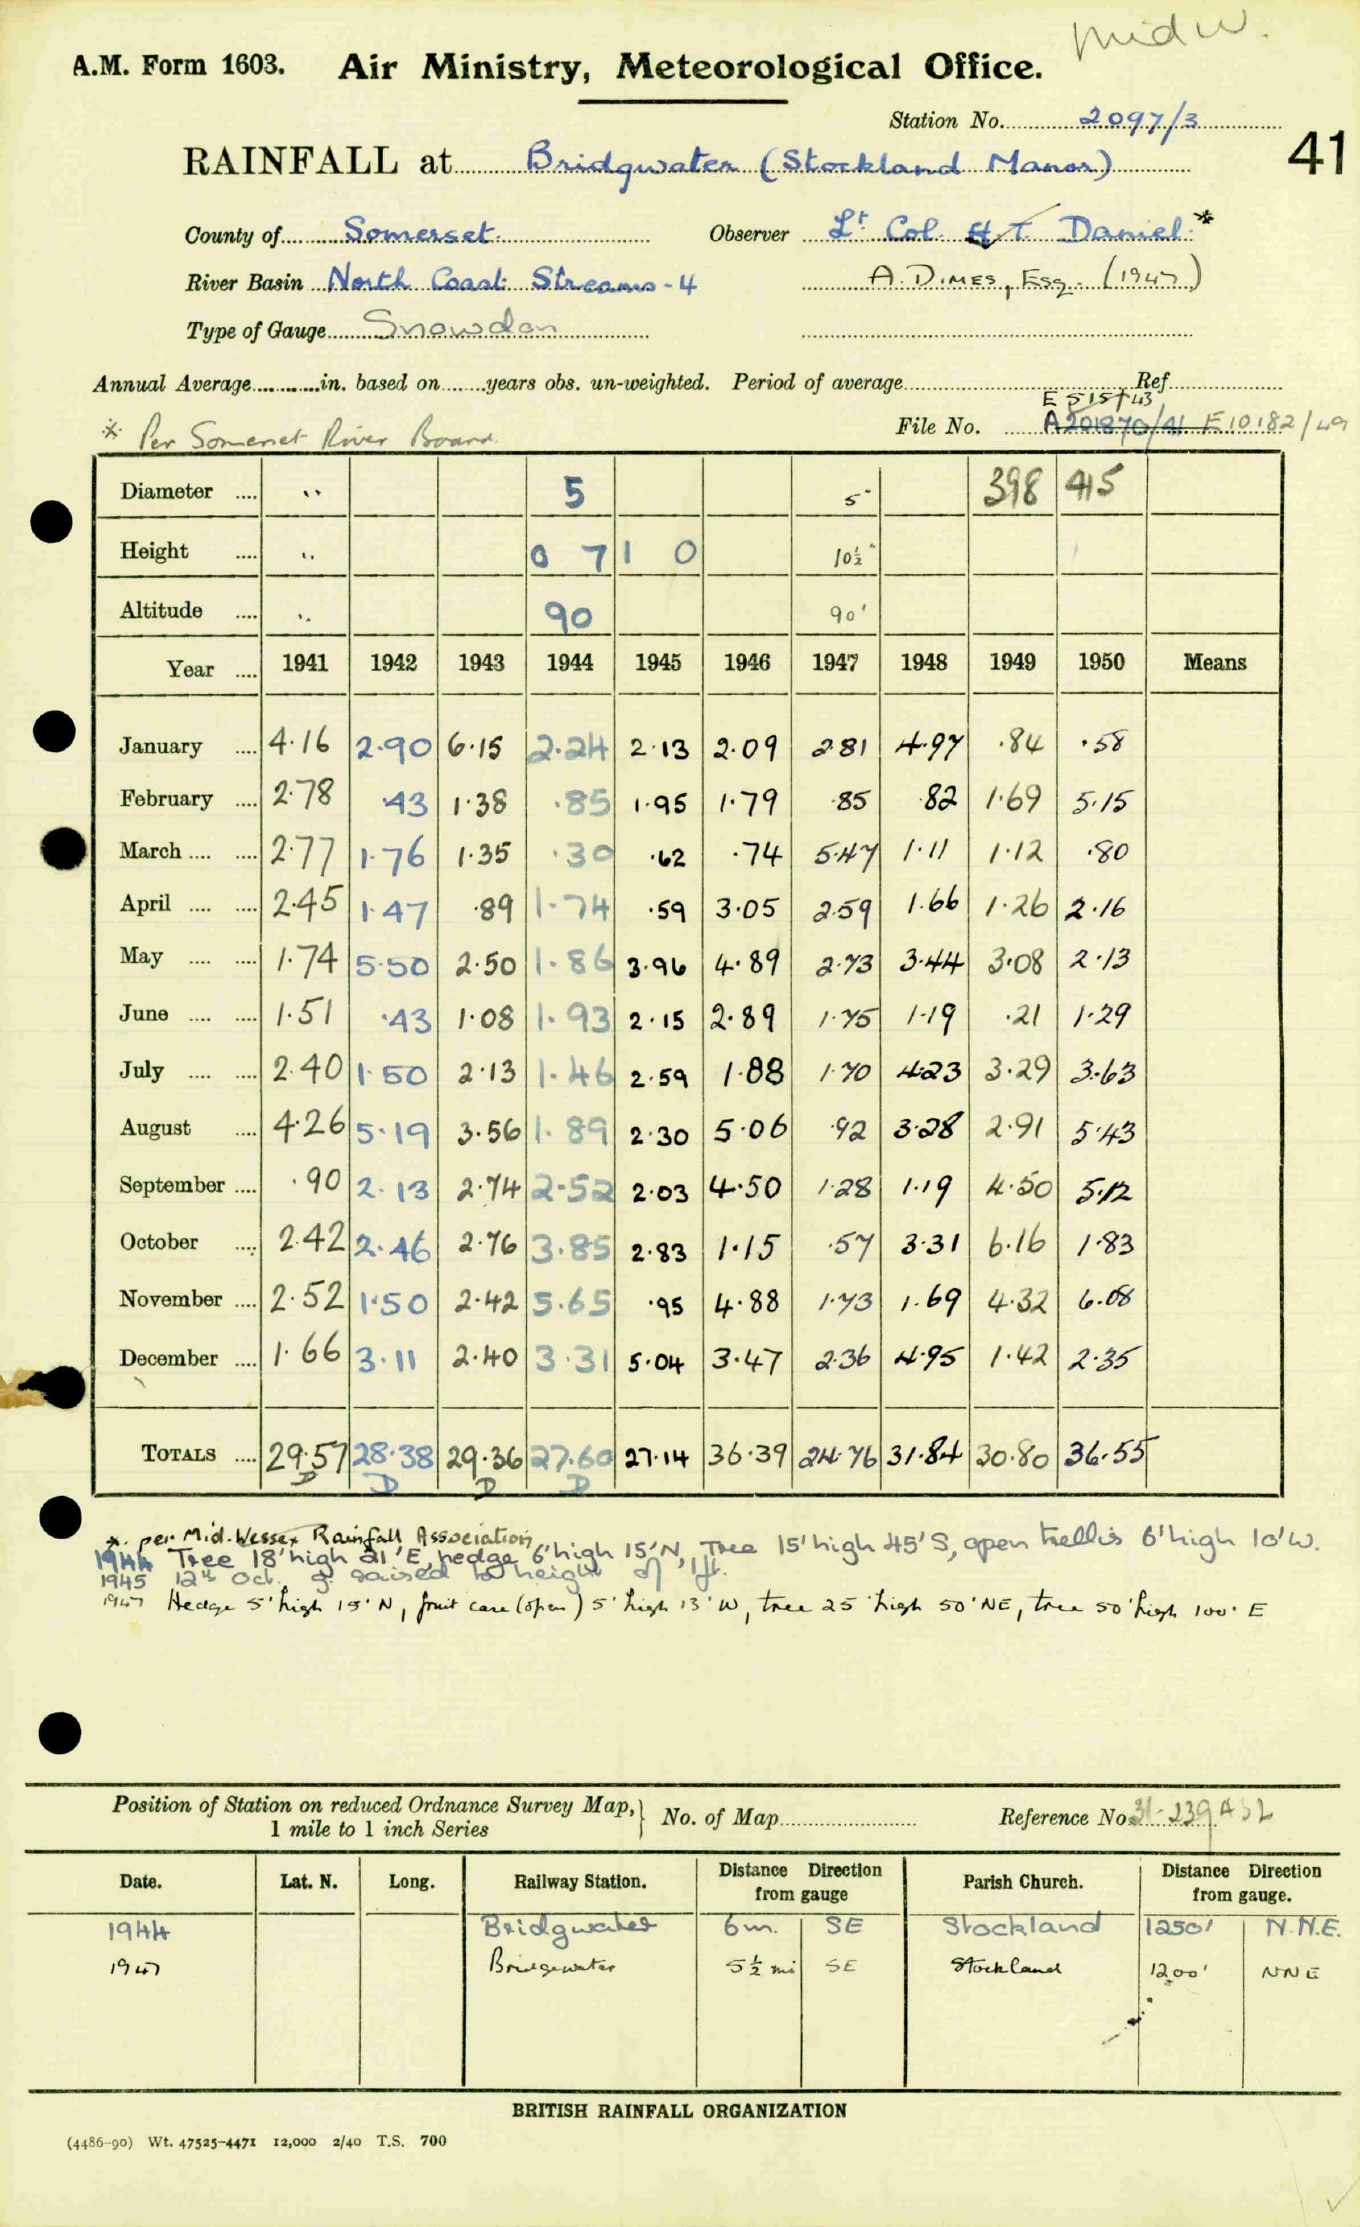 mid W.
A.M. Form 1603. Air Ministry, Meteorological Office.
Station No. 2097/3
41
RAINFALL at Bridgwater (Stockland Manor)
County of Somerset. Observer Lt Col. H T. Daniel. *
River Basin North Coast Streams - 4 A. DIMES, Esq. (1947)
Type of Gauge Snowdon
Annual Average in. based on years obs. un-weighted. Period of average Ref
E 515743
* Per Somerset River Board. File No. A201870/41 E10182/49
Diameter .... " 5 5" 398 415
Height .... " 0 7 1 0 10½"
Altitude .... " 90 90'
Year .... 1941 1942 1943 1944 1945 1946 1947 1948 1949 1950 Means
January .... 4.16 2.90 6.15 2.24 2.13 2.09 2.81 4.97 .84 .58
February .... 2.78 .43 1.38 .85 1.95 1.79 .85 .82 1.69 5.15
March .... .... 2.77 1.76 1.35 .30 .62 .74 5.47 1.11 1.12 .80
April .... .... 2.45 1.47 .89 1.74 .59 3.05 2.59 1.66 1.26 2.16
May .... .... 1.74 5.50 2.50 1.86 3.96 4.89 2.73 3.44 3.08 2.13
June .... .... 1.51 .43 1.08 1.93 2.15 2.89 1.75 1.19 .21 1.29
July .... .... 2.40 1.50 2.13 1.46 2.59 1.88 1.70 4.23 3.29 3.63
August .... 4.26 5.19 3.56 1.89 2.30 5.06 .92 3.28 2.91 5.43
September .... .90 2.13 2.74 2.52 2.03 4.50 1.28 1.19 4.50 5.12
October .... 2.42 2.46 2.76 3.85 2.83 1.15 .57 3.31 6.16 1.83
November .... 2.52 1.50 2.42 5.65 .95 4.88 1.73 1.69 4.32 6.08
December .... 1.66 3.11 2.40 3.31 5.04 3.47 2.36 4.95 1.42 2.35
TOTALS .... 29.57 28.38 29.36 27.60 27.14 36.39 24.76 31.84 30.80 36.55
D D D D
* per Mid-Wessex Rainfall Association
1944 Tree 18' high 21' E, hedge 6' high 15' N, Tree 15' high 45' S, open trellis 6' high 10' W.
1945 12th Oct. g. raised to height of 1ft.
1947 Hedge 5' high 15' N, fruit cage (open) 5' high 13' W, tree 25' high 50' NE, tree 50' high 100' E
Position of Station on reduced Ordnance Survey Map, 1 mile to 1 inch Series } No. of Map Reference No. 31-239452
Date. Lat. N. Long. Railway Station. Distance Direction from gauge Parish Church. Distance Direction from gauge.
1944 Bridgwater 6 m. SE Stockland 1250' N.N.E.
1947 Bridgewater 5½ mi SE Stockland 1200' NNE
BRITISH RAINFALL ORGANIZATION
(4486-90) Wt. 47525-4471 12,000 2/40 T.S. 700